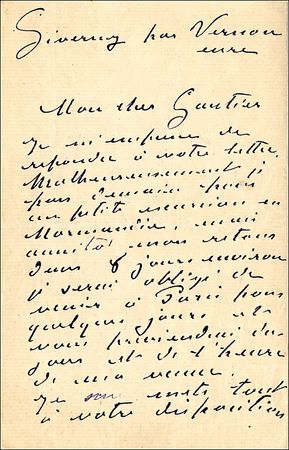 Giverny par Vernon
eure
Mon cher Gautier
Je m'empresse de
répondre à votre lettre.
Malheureusement je
pars demain pour
un petit excursion en
Normandie, mais
aussitôt mon retour
dans 8 jours environ
je serai obligé de
venir à Paris pour
quelques jours et
vous préviendrai du
jour et de l'heure
de ma venue.
Je me mets tout
à votre disposition